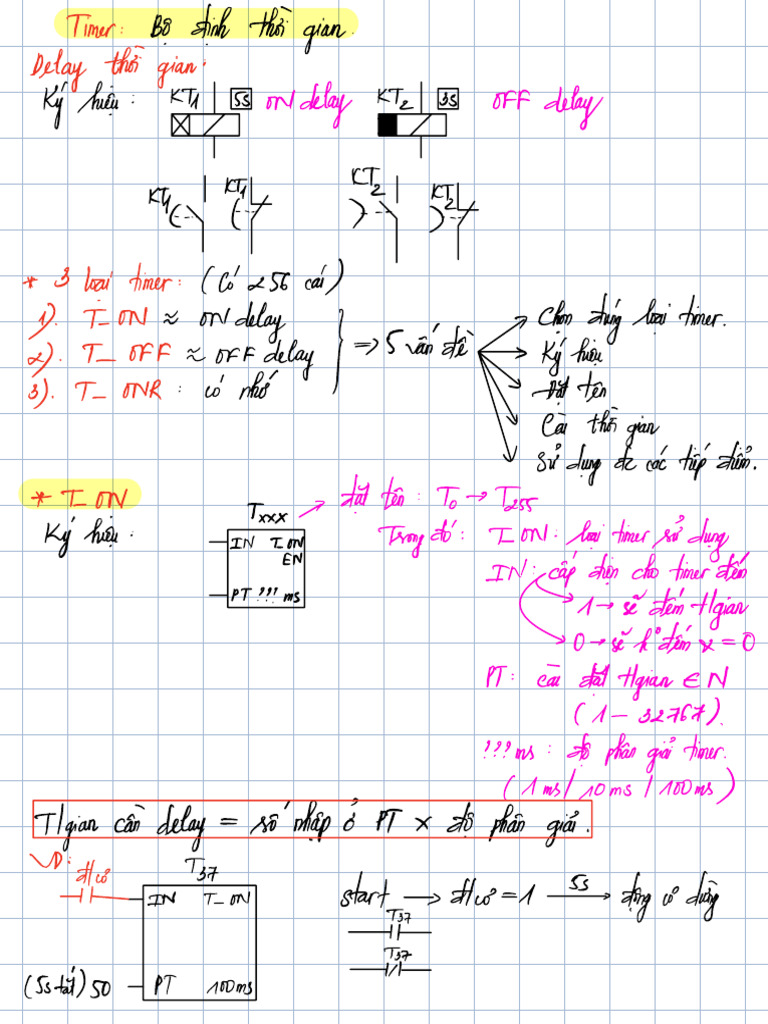 Timer: Bộ định thời gian.
Delay thời gian:
Ký hiệu: KT1 5s ON delay KT2 3s OFF delay
KT1 KT1 KT2 KT2
* 3 loại timer: (Có 256 cái)
1). T_ON ≈ ON delay
2). T_OFF ≈ OFF delay
3). T_ONR: có nhớ
=> 5 vấn đề
Chọn đúng loại timer.
Ký hiệu
Đặt tên
Cài thời gian
Sử dụng đc các tiếp điểm.
* T_ON
Ký hiệu:
Txxx → đặt tên: T0 → T255
IN T_ON
EN
PT ??? ms
Trong đó: T_ON: loại timer sử dụng
IN: cấp điện cho timer đếm
1 → sẽ đếm t/gian
0 → sẽ k° đếm x = 0
PT: cài đặt t/gian ∈ N
(1 - 32767).
???ms: độ phân giải timer.
(1ms/10ms/100ms)
T/gian cần delay = số nhập ở PT x độ phân giải.
VD:
T37
IN T_ON
(5s tắt) 50 PT 100ms
start → = 1 5s → động cơ dừng
T37
T37